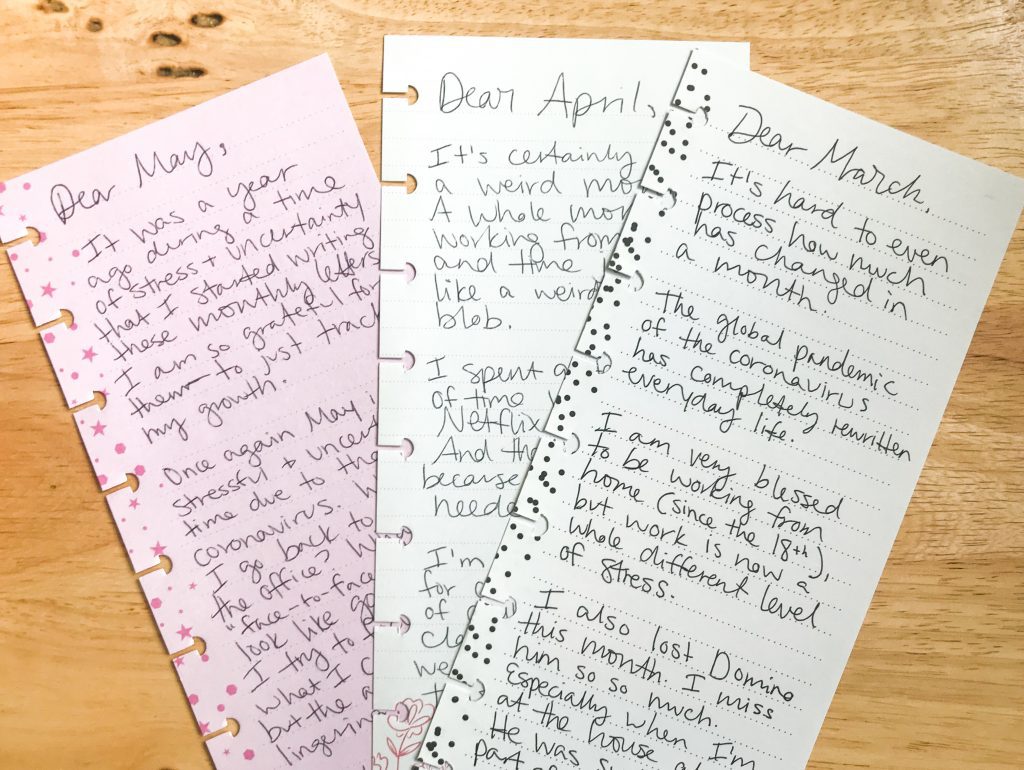 Dear May,
It was a year
ago during a time
of stress + uncertainty
that I started writing
these monthly letters.
I am so grateful for
them to just track
my growth.
Once again May i
stressful + uncert
time due to the
coronavirus.
I go back to
the office?
"face-to-face
look like
I try to
what I
but the
lingerin
Dear April,
It's certainly
a weird mo
A whole mon
working from
and time
like a weird
blob.
I spent a
of time
Netflix
And the
because
neede
I'm
for
of
cle
we
Dear March,
It's hard to even
process how much
has changed in
a month.
The global pandemic
of the coronavirus
has completely rewritten
everyday life.
I am very blessed
to be working from
home (since the 18th),
but work is now a
whole different level
of stress.
I also lost Domino
this month. I miss
him so so much.
Especially when I'm
at the house
He was
part